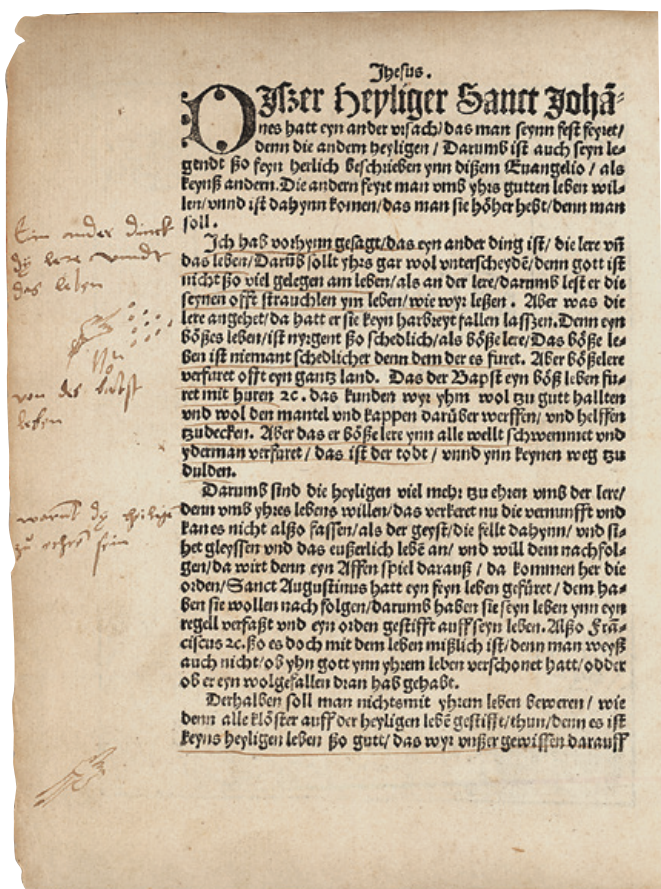 Jhesus.
DJszer Heyliger Sanct Johã⸗
nes hatt eyn ander vrsach/ das man seynn fest feyret/
denn die andern heyligen / Darumb ist auch seyn le⸗
gendt ßo feyn herlich beschrieben ynn dißem Euangelio / als
keynß andern. Die andern feyrt man vmb yhrs gutten leben wil⸗
len/ vnnd ist dahynn komen/ das man sie höher hebt/ denn man
soll.
Jch hab vorhynn gesagt/ das eyn ander ding ist/ die lere vñ
das leben/ Darũb sollt yhrs gar wol vnterscheydẽ/ denn gott ist
nicht ßo viel gelegen am leben/ als an der lere/ darumb lest er die
seynen offt strauchlen ym leben/ wie wyr leßen . Aber was die
lere angehet/ da hatt er sie keyn harbreyt fallen lasszen. Denn eyn
bößes leben/ ist nyrgent ßo schedlich/ als böße lere/ Das böße le⸗
ben ist niemant schedlicher denn dem der es furet. Aber böße lere
verfuret offt eyn gantz land. Das der Bapst eyn böß leben fu⸗
ret mit huren ꝛc. das kunden wyr yhm wol tzu gutt hallten
vnd wol den mantel vnd kappen darüber werffen/ vnd helffen
tzudecken. Aber das er böße lere ynn alle wellt schwemmet vnd
yderman verfuret / das ist der todt / vnnd ynn keynen weg tzu
dulden.
Darumb sind die heyligen viel mehr tzu ehren vmb der lere/
denn vmb yhres lebens willen/ das verkeret nu die vernunfft vnd
kan es nicht alßo fassen/ als der geyst/ die fellt dahynn / vnd si⸗
het gleyssen vnd das eußerlich lebẽ an/ vnd will dem nachfol⸗
gen/ da wirt denn eyn Affen spiel darauß / da kommen her die
orden/ Sanct Augustinus hatt eyn feyn leben gefüret / dem ha⸗
ben sie wollen nach folgen/ darumb haben sie seyn leben ynn eyn
regell verfaßt vnd eyn orden gestifft auff seyn leben. Alßo Frã⸗
ciscus ꝛc. ßo es doch mit dem leben mißlich ist/ denn man weyß
auch nicht/ ob yhn gott ynn yhrem leben verschonet hatt/ odder
ob er eyn wolgefallen dran hab gehabt.
Derhalben soll man nichts mit yhrem leben beweren / wie
denn alle klöster auff der heyligen lebẽ gestifft/ thun/ denn es ist
keyns heyligen leben ßo gutt/ das wyr vnßer gewissen darauff
Ein ander dinck
dy lere vnndt
das leben
von des babst
leben